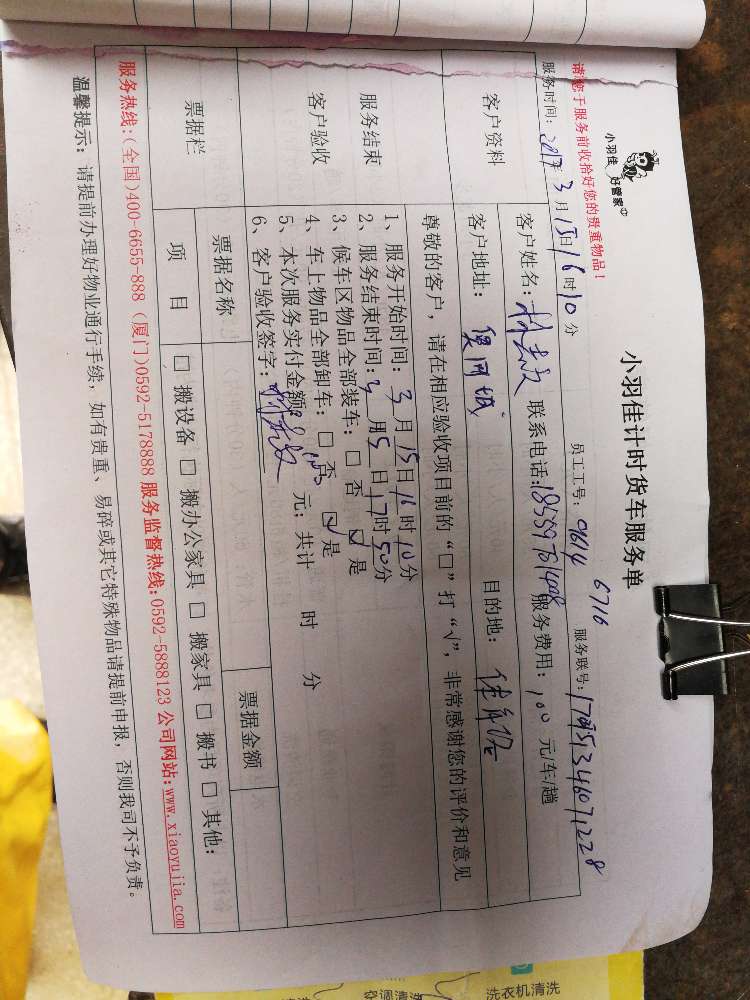 小羽佳 好管家
小羽佳计时货车服务单
请您于服务前收拾好您的贵重物品！
员工工号：9614 6716
服务时间：2017年3月15日16时10分
服务联号：
客户资料
客户姓名：
联系电话：
服务费用：100元/车/趟
客户地址：
目的地：
尊敬的客户，请在相应验收项目前的“□”打“√”，非常感谢您的评价和意见
服务结束
客户验收
1、服务开始时间：3月15日16时10分
2、服务结束时间：3月5日17时50分
3、候车区物品全部装车：□ 否 ☑ 是
4、车上物品全部卸车：□ 否 ☑ 是
5、本次服务实付金额 元；共计 时 分
6、客户验收签字：
票据栏
票据名称
票据金额
项 目
□ 搬设备 □ 搬办公家具 □ 搬家具 □ 搬书 □ 其他：
服务热线：(全国)400-6655-888 (厦门)0592-5178888 服务监督热线：0592-5888123 公司网站：www.xiaoyujia.com
温馨提示：请提前办理好物业通行手续，如有贵重、易碎或其它特殊物品请提前申报，否则我司不予负责。
洗衣机清洗